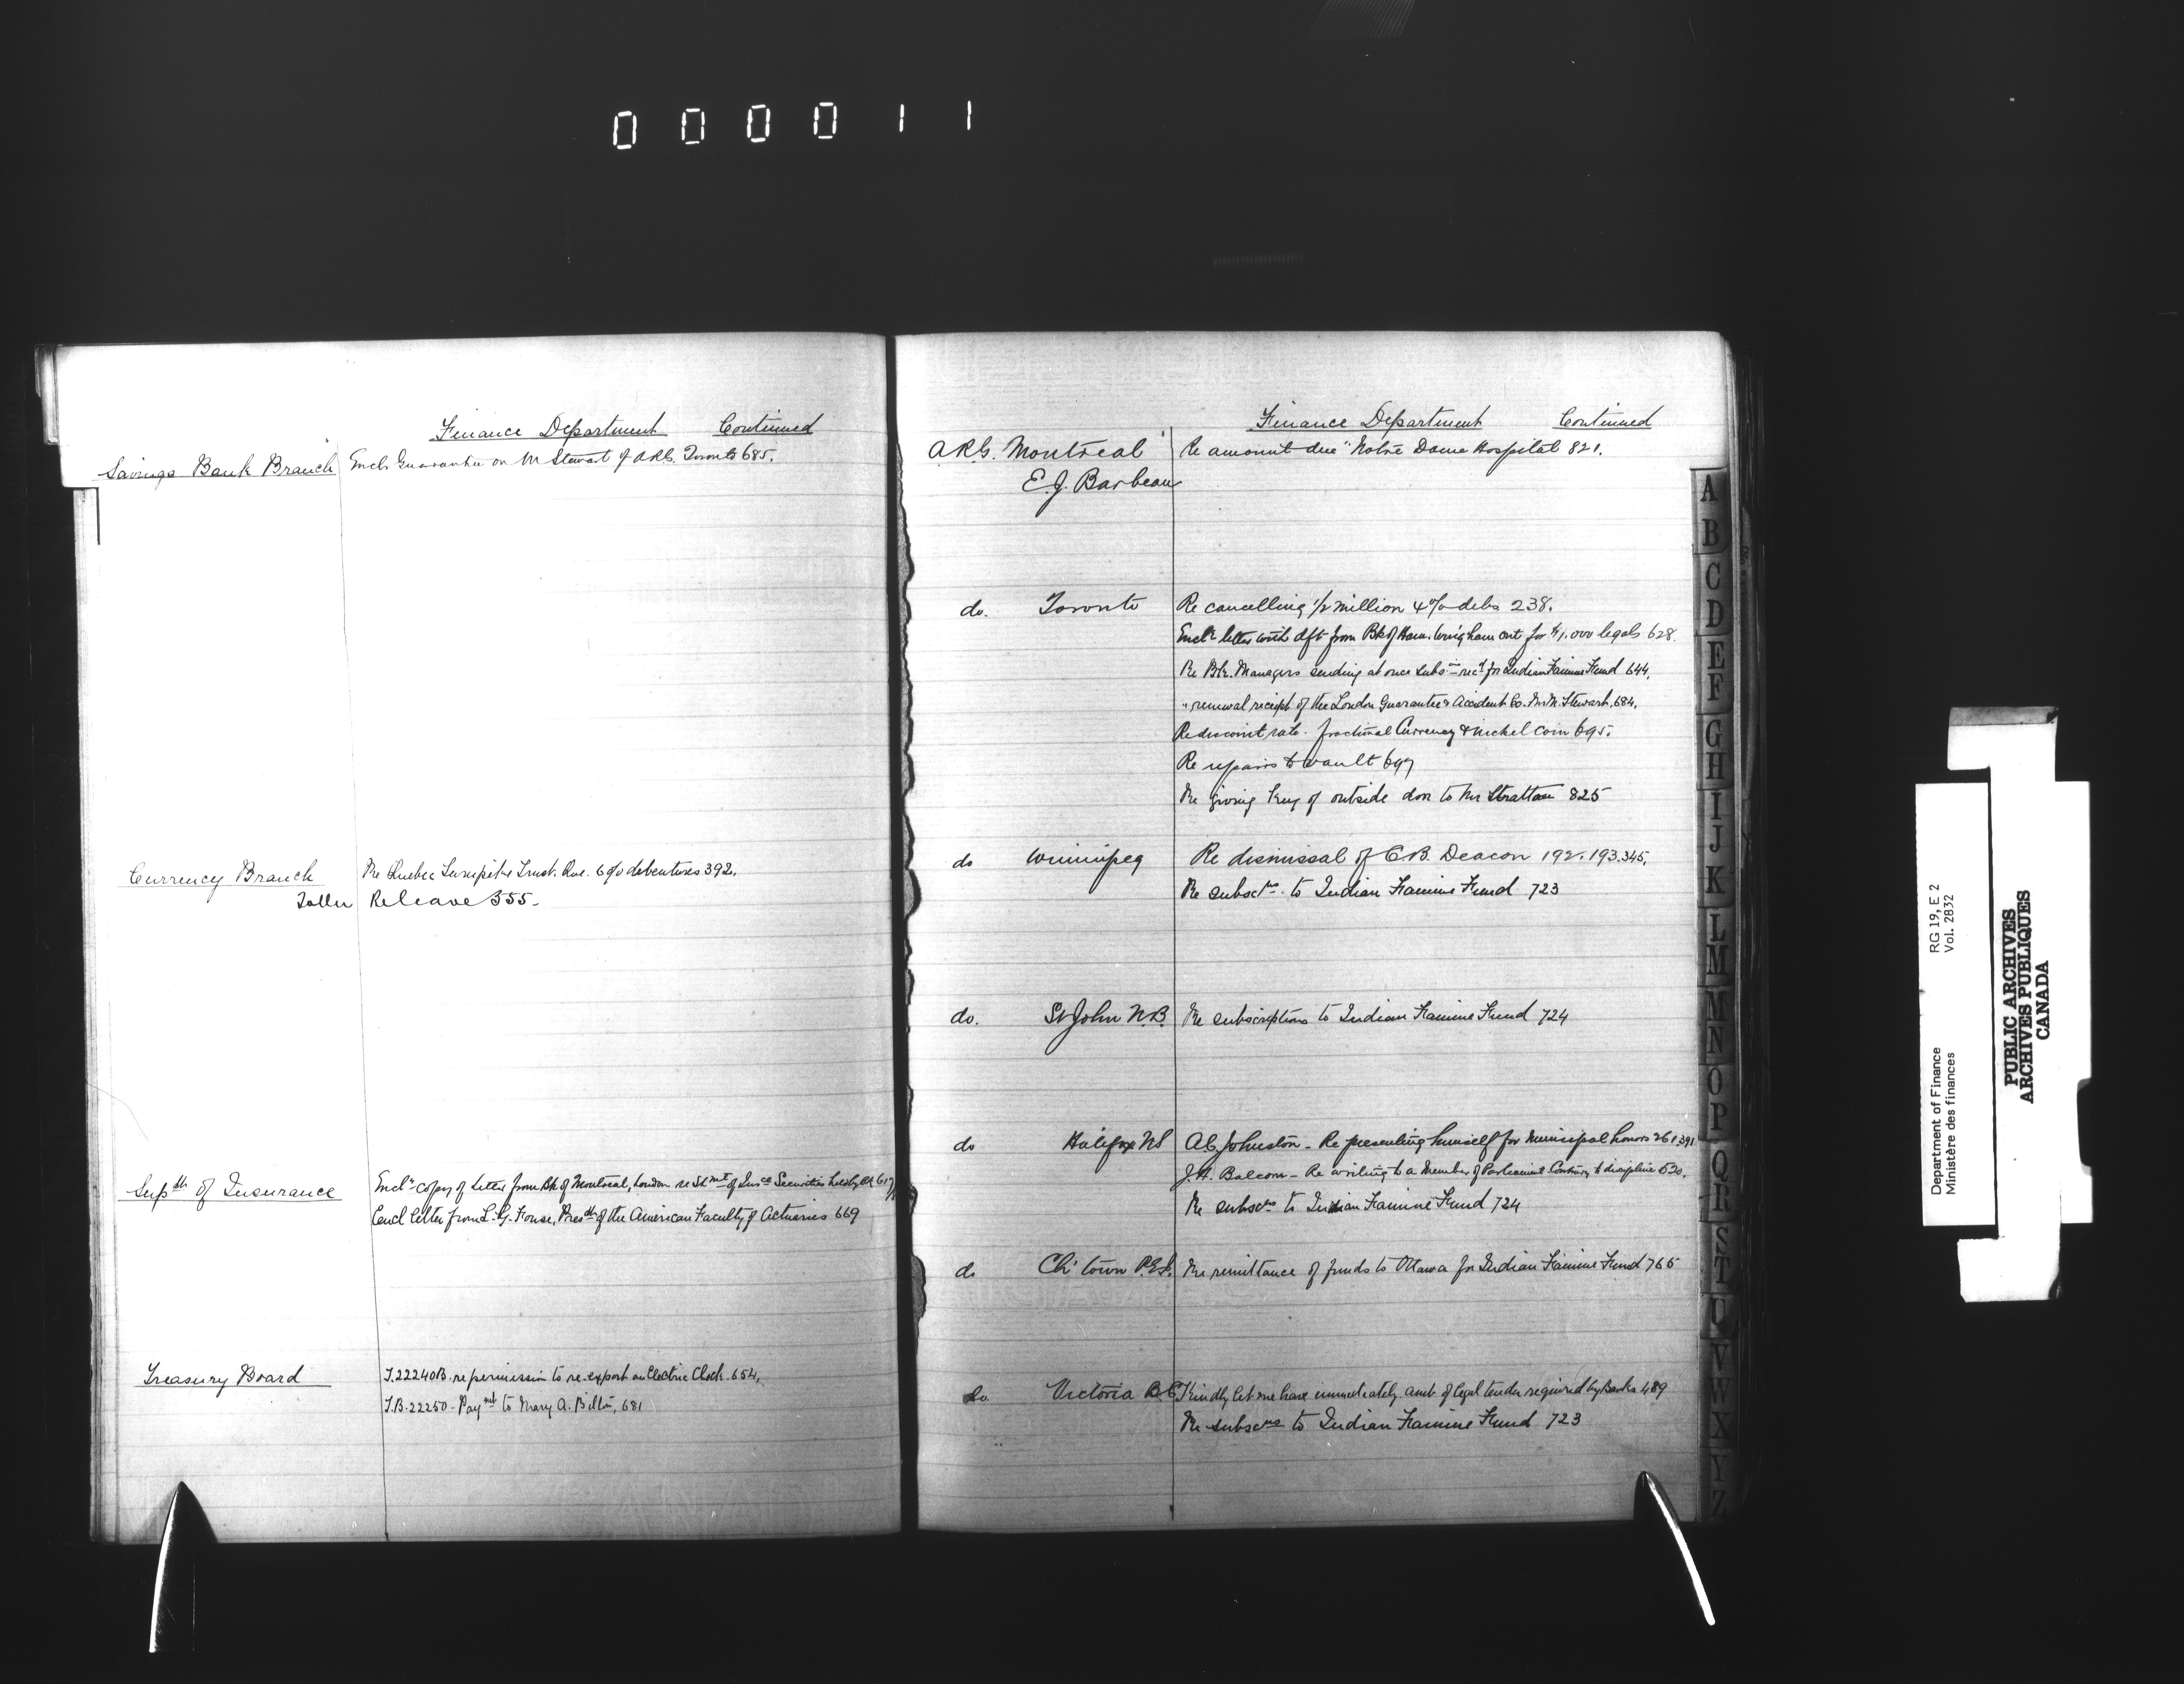 000011
Finance Department Continued
Savings Bank Branch Encl. Guarantee on M Stewart of A.R.G. Toronto 685.
Currency Branch Re Quebec Turnpike Trust. Que. 6% debentures 392.
Re leave 555.
Supdt of Insurance Enclg copy of letter from Bk of Montreal, London re Stmt of Insce Securities held by
Encl letter from L. G. Fouse, Presdt of the American Faculty of Actuaries 669
Treasury Board T. 22240B. re permission to re-export an Electric Clock. 654,
T.B. 22250 - Paymt to Mary A. 681
Finance Department Continued
A.R.G. Montreal Re amount due "Notre Dame Hospital 821.
E. J. Barbeau
do. Toronto Re cancelling 1/2 million 4% debs 238.
Enclg letter with dft from Bk of Ham. Wingham Ont for $1,000 legals 628.
Re Bk. Managers sending at once subsn recd for Indian Famine Fund 644,
" renewal receipt of the London Guarantee & Accident Co. Mr M. Stewart, 684,
Re discount rate. fractional Currency & nickel coin 695.
Re repairs to vault 697
Re giving key of outside door to Mr Stratton 825
do Winnipeg Re dismissal of C.B. Deacon 192. 193. 345.
Re subscns. to Indian Famine Fund 723
do. St John N.B. Re subscriptions to Indian Famine Fund 724
do Halifax NS A.C. Johnston - Re presenting himself for Municipal honors 261 391
J. H. Balcom - Re writing to a Member of Parliament Contrary to discipline 530.
Re subscns to Indian Famine Fund 724
do Ch'town P.E.I. Re remittance of funds to Ottawa for Indian Famine Fund 765
do. Victoria B.C. Kindly let me have immediately amt. of legal tender required by Banks 489
Re subscns to Indian Famine Fund 723
A
B
C
D
E
F
G
H
I
J
K
L
M
M
N
O
P
Q
R
S
T
U
V
W
X
Y
Z
Department of Finance RG 19, E 2
Ministère des finances Vol. 2832
PUBLIC ARCHIVES
ARCHIVES PUBLIQUES
CANADA